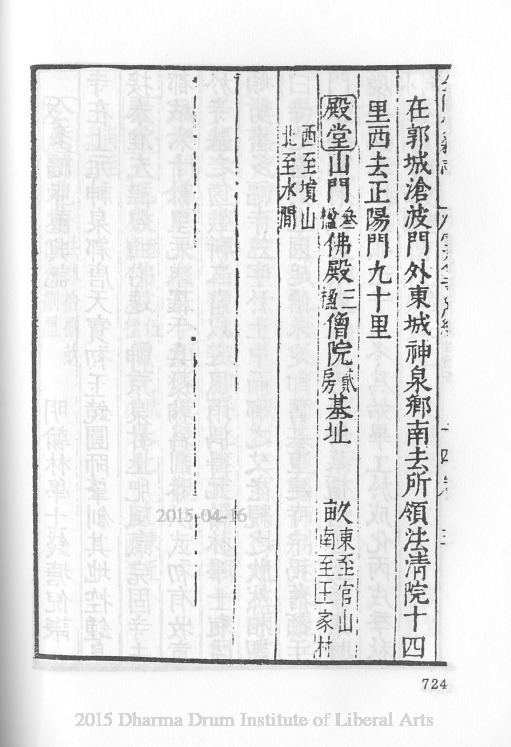 在郭城滄波門外東城神泉鄉南去所領法清院十四
里西去正陽門九十里
殿堂山門叁楹佛殿三楹僧院貳房基址 畝東至官山南至王家村
西至墳山北至水澗
724
2015-04-16
2015 Dharma Drum Institute of Liberal Arts